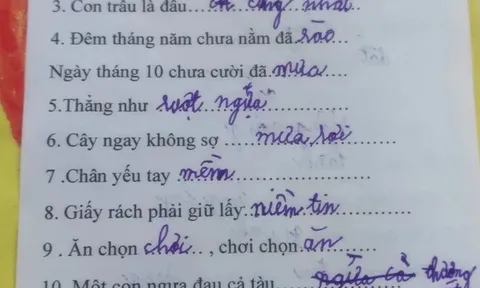 3. Con trâu là đầu.... cũng nhất..
4. Đêm tháng năm chưa nằm đã.rào...
Ngày tháng 10 chưa cười đã.mưa....
5.Thẳng như ruột ngựa...............
6. Cây ngay không sợ .....mưa rơi
7 .Chân yếu tay mềm...................
8. Giấy rách phải giữ lấy..niềm tin...........
9 . Ăn chọn chơi.. , chơi chọn.ăn........
10. Một con ngựa đau cả tàu ....ngựa cả